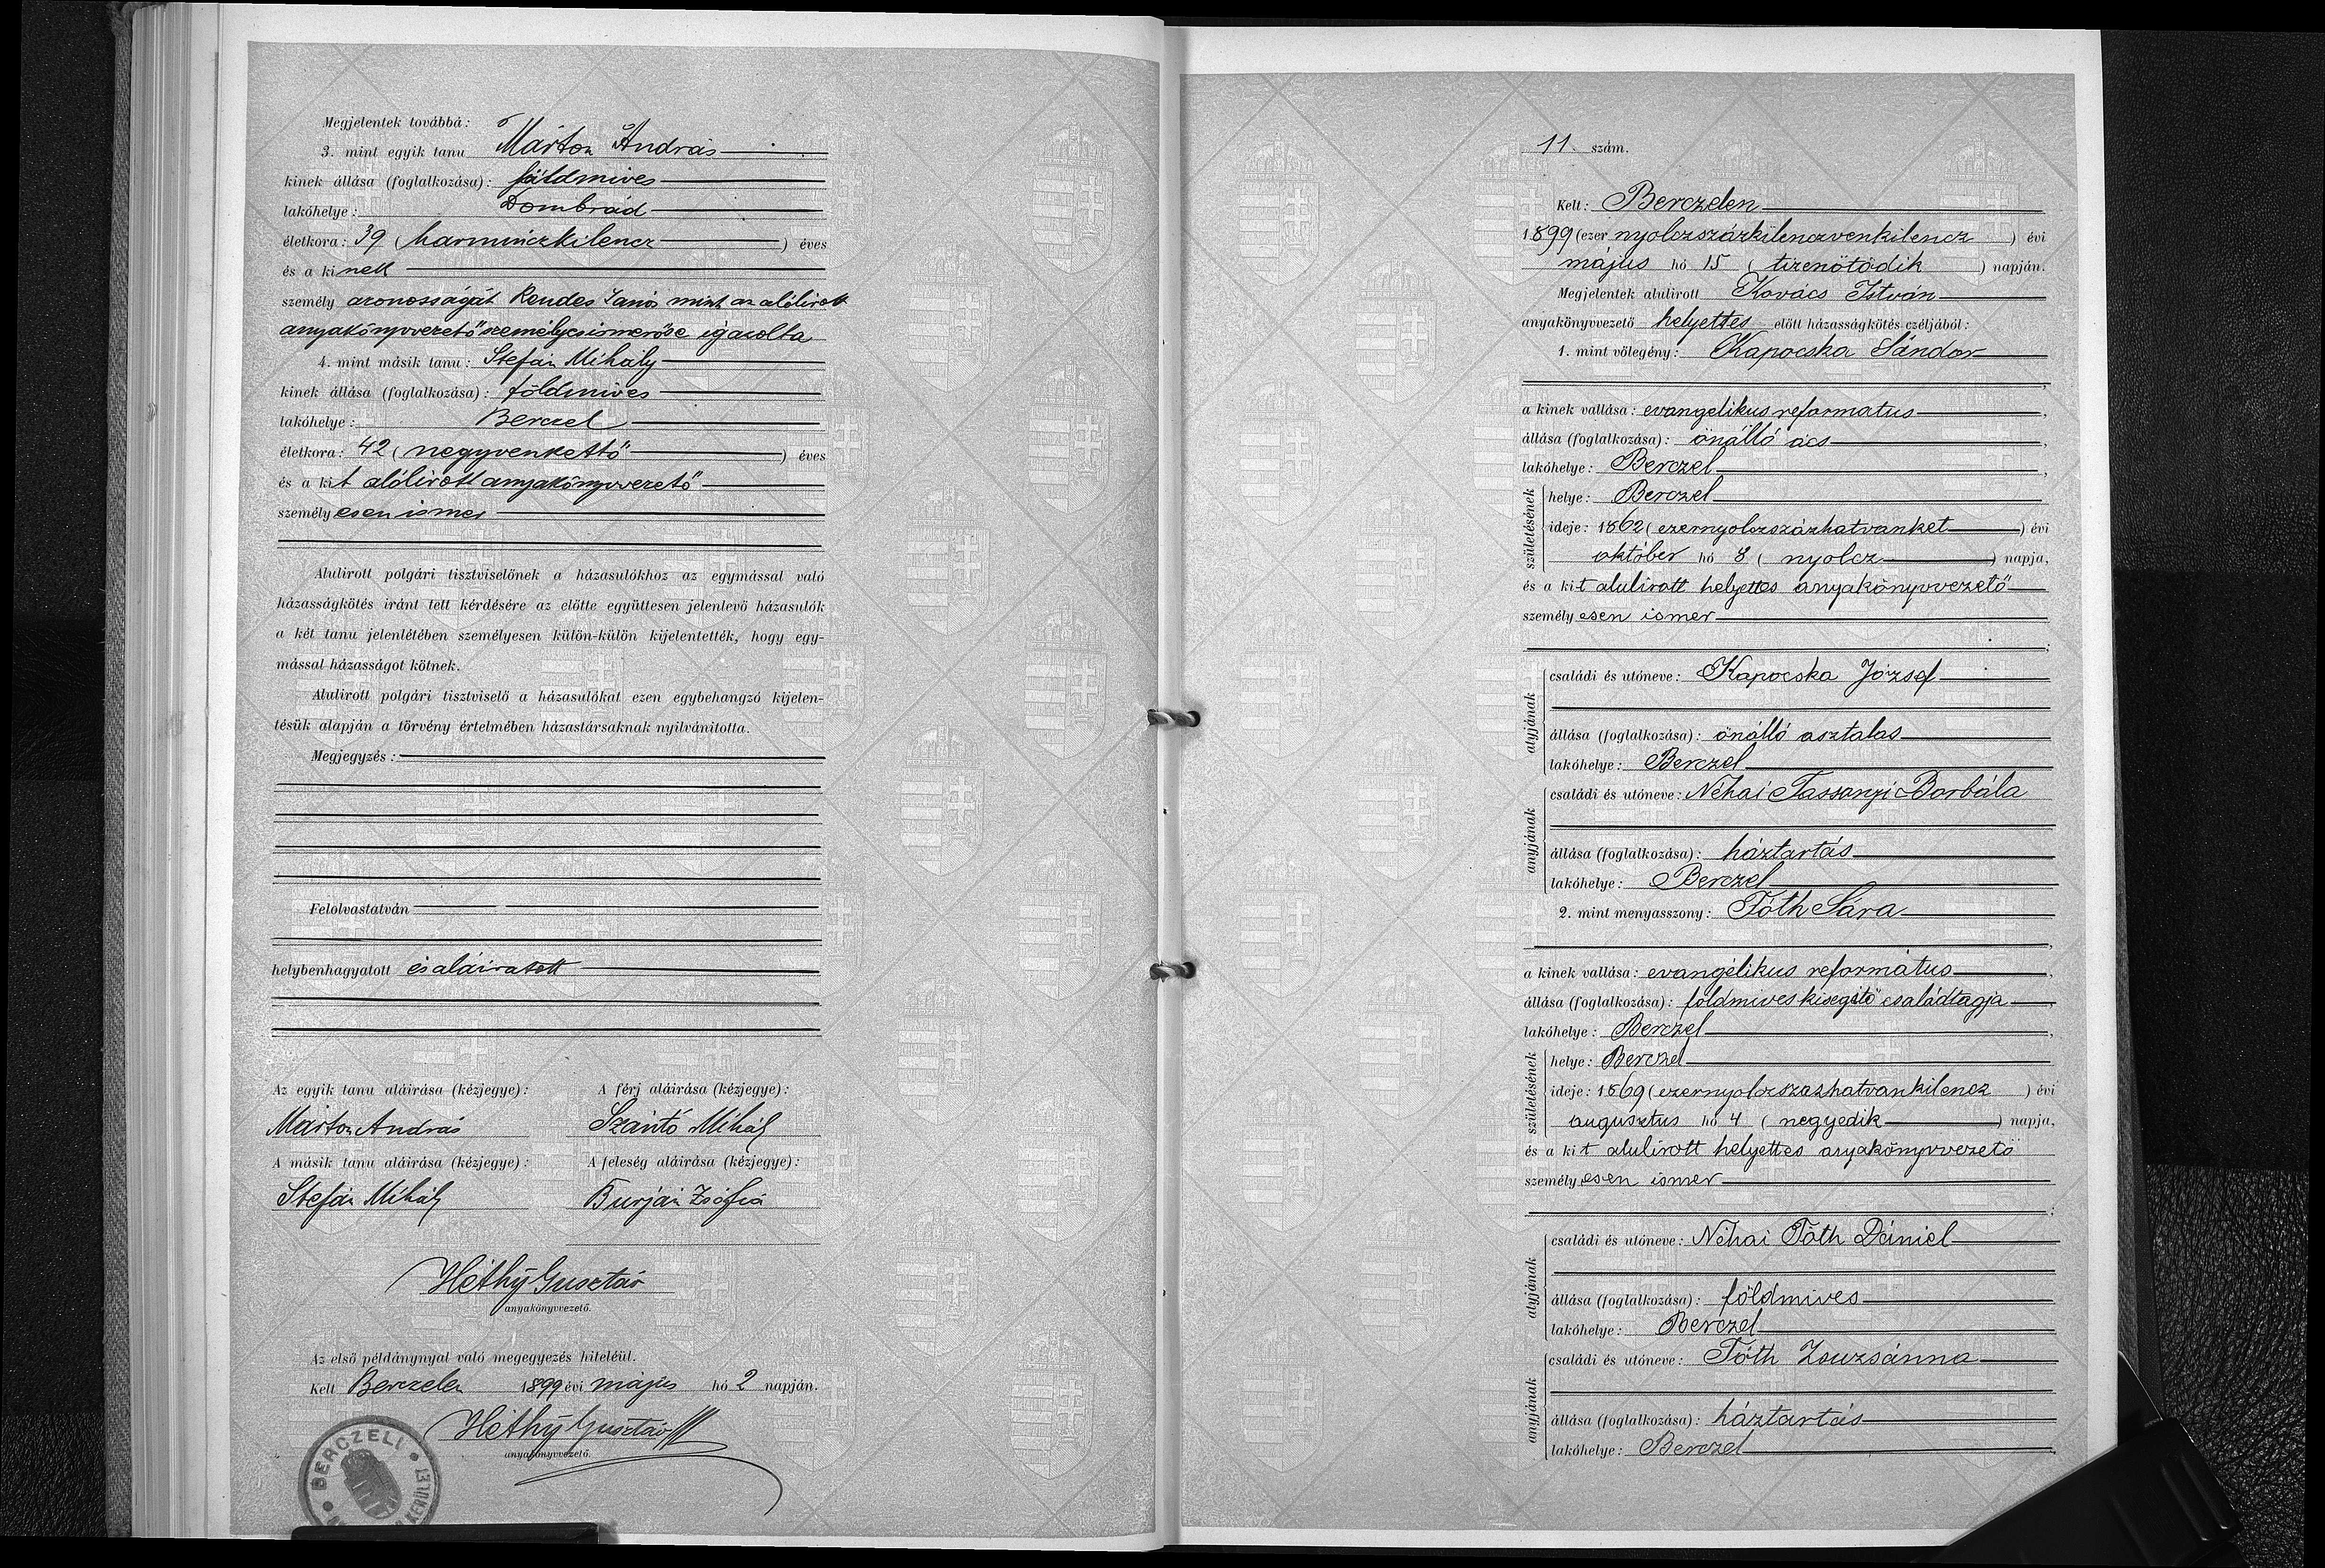 Megjelentek továbbá:
3. mint egyik tanu Márton András
kinek állása (foglalkozása): földmives
lakóhelye: Dombrád
életkora: 39 (harminczkilencz) éves
és a kinek
személy azonosságát Rendes János mint az alólirott
anyakönyvvezető személyes ismerőse igazolta
4. mint másik tanu: Stefán Mihály
kinek állása (foglalkozása): földmives
lakóhelye: Berczel
életkora: 42 (negyvenkettő) éves
és a kit alólirott anyakönyvvezető
személyesen ismer
Alulirott polgári tisztviselőnek a házasulókhoz az egymással való
házasságkötés iránt tett kérdésére az előtte együttesen jelenlevő házasulók
a két tanu jelenlétében személyesen külön-külön kijelentették, hogy egy-
mással házasságot kötnek.
Alulirott polgári tisztviselő a házasulókat ezen egybehangzó kijelen-
tésük alapján a törvény értelmében házastársaknak nyilvánitotta.
Megjegyzés:
Felolvastatván
helybenhagyatott és aláiratott
Az egyik tanu aláirása (kézjegye): A férj aláirása (kézjegye):
Márton András Szántó Mihál
A másik tanu aláirása (kézjegye): A feleség aláirása (kézjegye):
Stefán Mihál Burján Zsófia
Héthy Gusztáv
anyakönyvvezető.
Az első példánynyal való megegyezés hiteléül.
Kelt Berczelen 1899 évi május hó 2 napján.
Héthy Gusztáv
anyakönyvvezető.
BERCZELI
KERÜLET
11. szám.
Kelt: Berczelen
1899 (ezer nyolczszázkilenczvenkilencz) évi
május hó 15 (tizenötödik) napján.
Megjelentek alulirott Kovács István
anyakönyvvezető helyettes előtt házasságkötés czéljából:
1. mint vőlegény: Kapocska Sándor
a kinek vallása: evangelikus reformatus
állása (foglalkozása): önálló ács
lakóhelye: Berczel
születésének
helye: Berczel
ideje: 1862 (ezernyolczszázhatvankét) évi
október hó 8 (nyolcz) napja,
és a kit alulirott helyettes anyakönyvvezető
személyesen ismer
atyjának
családi és utóneve: Kapocska József
állása (foglalkozása): önálló asztalas
lakóhelye: Berczel
anyjának
családi és utóneve: Néhai Tassonyi Borbála
állása (foglalkozása): háztartás
lakóhelye: Berczel
2. mint menyasszony: Tóth Sára
a kinek vallása: evangélikus református
állása (foglalkozása): földmives kisegitő családtagja
lakóhelye: Berczel
születésének
helye: Berczel
ideje: 1869 (ezernyolczszázhatvankilencz) évi
augusztus hó 4 (negyedik) napja,
és a kit alulirott helyettes anyakönyvvezető
személyesen ismer
atyjának
családi és utóneve: Néhai Tóth Dániel
állása (foglalkozása): földmives
lakóhelye: Berczel
anyjának
családi és utóneve: Tóth Zsuzsánna
állása (foglalkozása): háztartás
lakóhelye: Berczel